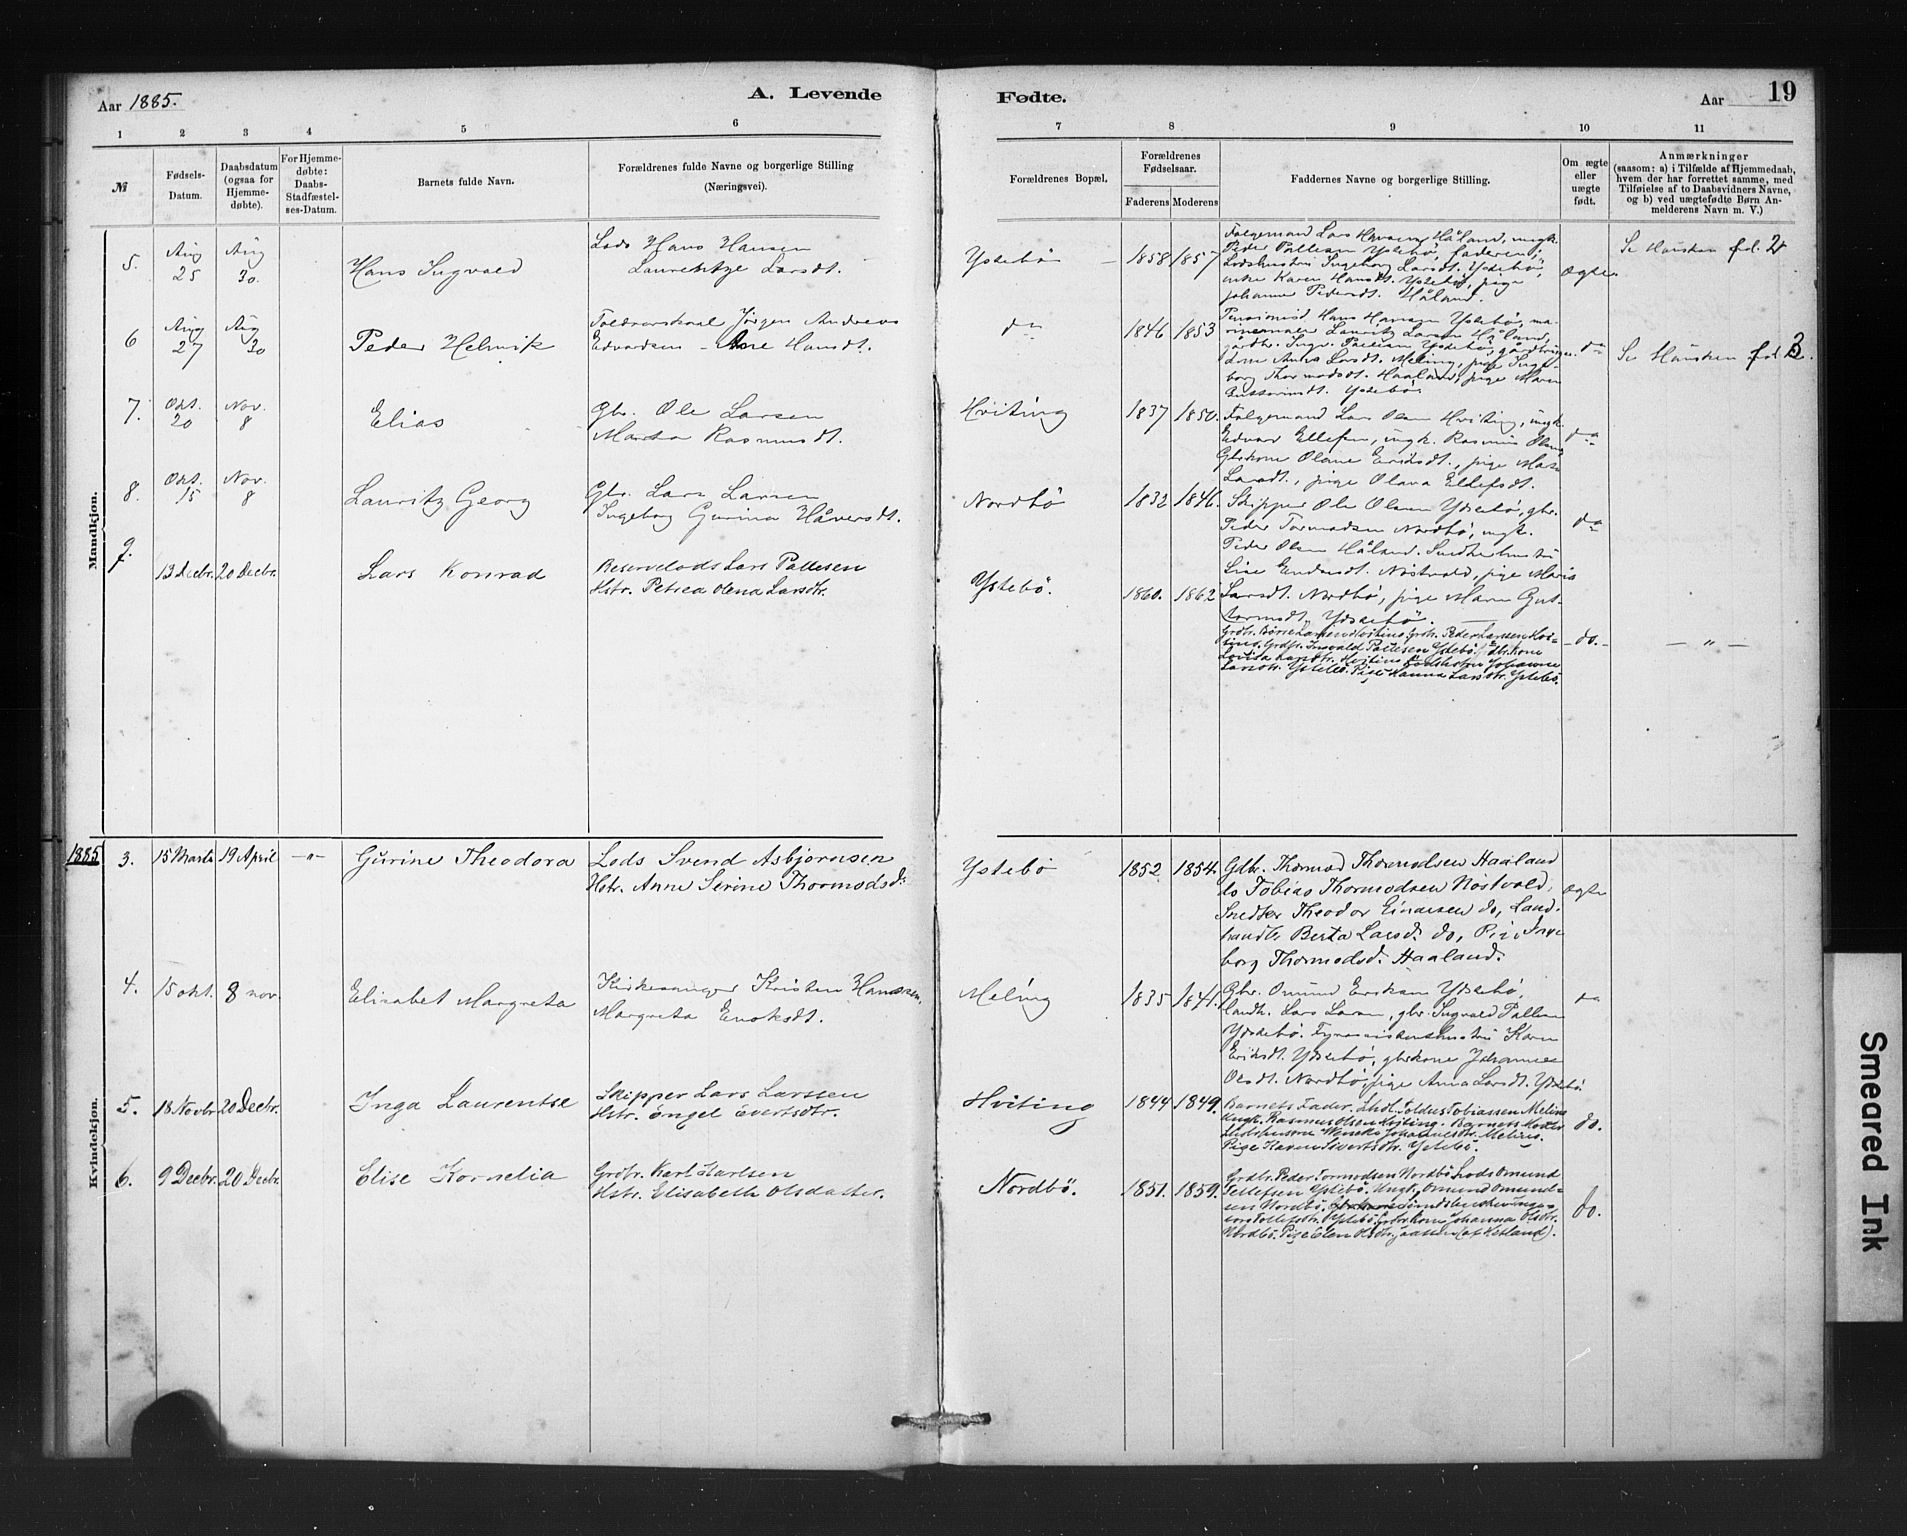 Aar 1885.
A. Levende
Fødte.
Aar
19
1
2
3
4
5
6
7
8
9
10
11
№
Fødsels-
Datum.
Daabsdatum
(ogsaa for
Hjemme-
døbte).
For Hjemme-
døbte:
Daabs-
Stadfæstel-
ses-Datum.
Barnets fulde Navn.
Forældrenes fulde Navne og borgerlige Stilling
(Næringsvei).
Forældrenes Bopæl.
Forældrenes
Fødselsaar.
Faderens
Moderens
Faddernes Navne og borgerlige Stilling.
Om ægte
eller
uægte
født.
Anmærkninger
(saasom: a) i Tilfælde af Hjemmedaab,
hvem der har forrettet samme, med
Tilføielse af to Daabsvidners Navne,
og b) ved uægtefødte Børn An-
melderens Navn m. V.)
Mandkjøn.
5.
Aug
25
Aug
30.
Hans Ingvald
Lods Hans Hansen
Laurentze Larsdt.
Ystebö
1858
1857
Lars Håland, ungk.
Peder Pallesen Ystebö, faderen,
Lodshustru Ingeborg Larsdt. Ystebö,
enke Karen Hansdt. Ystebö, pige
Johanne Pedersdt. Håland.
ægte
Se Hausken fol. 2
6
Aug
27
Aug
30
Peder Helmik
Jörgen Andreas
Edvardsen - Ane Hansdt.
do
1846
1853
Hans Hansen Ystebö,
Lauritz Larsen Håland,
Ingv. Pallesen Ystebö,
Anna Larsdt. Meling, pige Inge-
borg Thormodsdt. Haaland, pige Maren
Ystebö.
do
Se Hausken fol. 3.
7.
Okt.
20
Nov.
8
Elias
Gbr. Ole Larsen
Marta Rasmusdt.
Hviting
1837
1850.
Lars Olsen Hviting, ungk.
Edvar Ellefsen, ungk. Rasmus Olsen,
Gbrkone Olane Eriksdt., pige
Larsdt., pige Olava Ellefsdt.
do
8.
Okt.
15
Nov.
8
Lauritz Georg
Gbr. Lars Larsen
Ingeborg Gurina Håversdt.
Nordbö
1832
1846.
Skipper Ole Olsen Ydstebö, gbr.
Peder Tormodsen Nordbö, ungk.
Peder Olsen Håland. Snedkerhustru
Lise Nöstvold, pige Maria
Larsdt. Nordbö, pige Maren Gut-
tormsdt. Ydstebö.
do
9.
13 Decbr.
20 Decbr.
Lars Konrad
Reservelods Lars Pallesen
Hstr. Petrea Olena Larsdtr.
Ystebö.
1860.
1862
Grdbr. Börre Larsen Hviting, Grdbr. Peder Larssen Hvi-
ting. Grdbr. Ingvald Pallesen Ystebö. Gbrkone
Lovisa Larsdtr. Hviting. Lodskone Johanne
Larsdtr. Ystebö. Pige Hanna Larsdtr. Ystebö.
- do. -
- " -
Kvindekjøn.
1885
3.
15 Marts
19 April
- " -
Gurine Theodora
Lods Svend Asbjørnsen
Hstr. Anne Serine Thormodsd:
Ystebö
1852
1854.
Gdbr. Thormod Thormodsen Haaland
do Tobias Thormodsen Nöstvold,
Snedker Theodor Einarsen do, Land-
handlr Berta Larsd. do, Pige Inge
borg Thormodsd. Haaland.
ægte
4.
15 okt.
8 nov.
Elisabet Margreta
Kirkesanger Kristen Hansen,
Margreta Enoksdt.
Meling
1835
1841.
Gbr. Omund Eriksen Ydstebö,
landh. Lars Larsen, gbr. Ingvald Pallesen
Ydstebö. Karen
Eriksdt. Ydstebö, gbrkone Johanne
Olsdt. Nordbö, pige Anna Larsdt. Ydstebö
do
5.
18 Novbr
20 Decbr.
Inga Laurentse
Skipper Lars Larssen
Hstr. Engel Evertsdtr.
Hviting
1844
1849.
Barnets Fader. Tobiassen Meling
Ungk. Rasmus Olsen Hviting. Barnets Moder
Johannesdtr. Meling.
Pige Karen Sivertsdtr. Ystebö.
do.
6.
9 Decbr.
20 Decbr.
Elise Kornelia
Grdbr. Karl Karlsen
Hstr. Elisabeth Olsdatter.
Nordbö.
1851.
1859.
Grdbr. Peder Tormodsen Nordbö. Lods Omund
Tellefsen Ystebö. Ungk. Omund Omund-
sen Nordbö.
Ystebö. Grdbrkone Johanna Olsdtr.
Nordbö. Pige Elen Olsdtr. (af Hetland).
do.
Smeared Ink